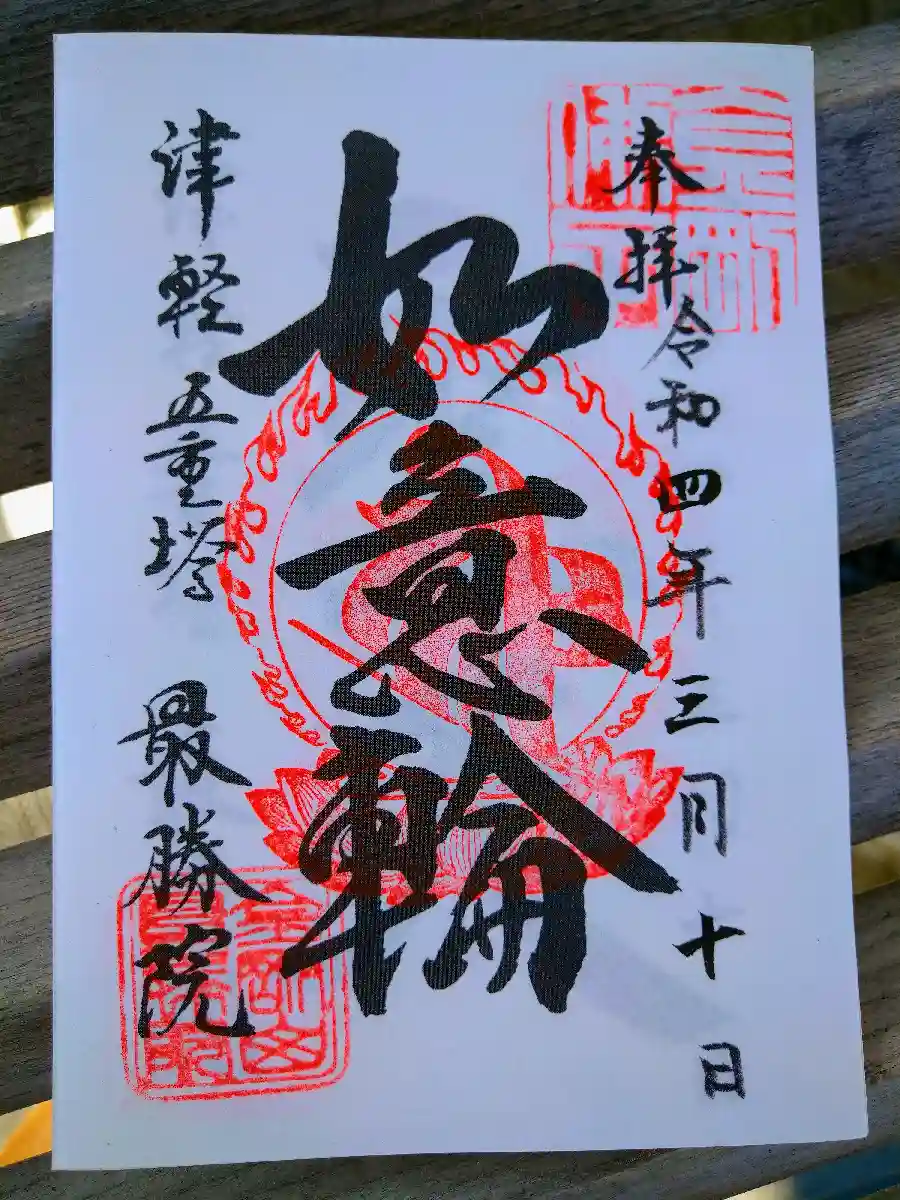 奉拝 令和四年三月十日
如意輪
津軽 五重塔 最勝院